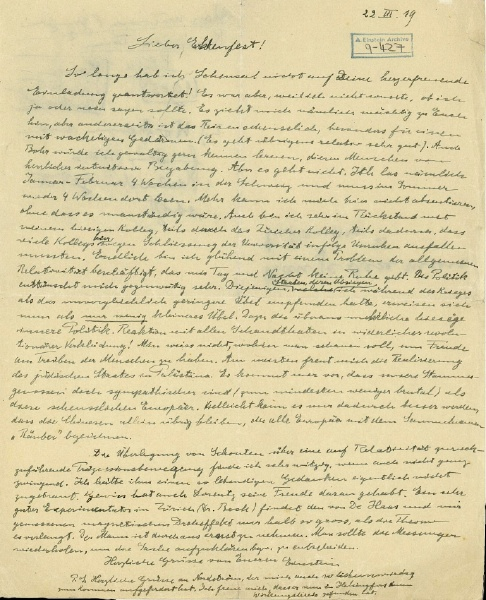 22. III. 19
A. Einstein Archive
9-427
Lieber Ehrenfest!
So lange hab ich Scheusal nicht auf Deine herzerfreuende
Einladung geantwortet! Es war aber, weil ich nicht wusste, ob ich
ja oder nein sagen sollte. Es zieht mich nämlich mächtig zu Euch
hin, aber andererseits ist das Reisen scheusslich, besonders für einen
mit wackeligen Gedärmen (Es geht übrigens relativ sehr gut). Auch
Bohr würde ich gewaltig gern kennen lernen, diesen Menschen von
herrlicher intuitiver Begabung. Aber es geht nicht. Ich las nämlich
Januar-Februar 4 Wochen in der Schweiz und muss im Sommer
wieder 4 Wochen dort lesen. Mehr kann ich mich hier nicht absentieren,
ohne dass es unanständig wäre. Auch bin ich sehr im Rückstand mit
meinem hiesigen Kolleg, teils durch das Züricher Kolleg, teils dadurch, dass
viele Kollegs wegen Schliessung der Universität infolge Unruhen ausfallen
mussten. Endlich bin ich glühend mit einem Problem der allgemeinen
Relativität beschäftigt, das mir Tag und Nacht keine Ruhe gibt. Die Politik
enttäuscht mich gegenwärtig sehr. Diejenigen während des Krieges
als das unvergleichlich geringere Übel empfunden hatte, erweisen sich
nun als nur wenig kleineres Übel. Dazu die überaus hiesige
innere Politik: Reaktion mit allen Schandthaten in widerlicher revolu-
tionärer Verkleidung! Man weiss nicht, wohin man schauen soll, um Freude
am Treiben der Menschen zu haben. Am meisten freut mich die Realisierung
des jüdischen Staates in Palästina. Es kommt mir vor, dass unsere Stammes-
genossen doch sympathischer sind (zum mindesten weniger brutal) als
diese scheusslichen Europäer. Vielleicht kann es nur dadurch besser werden,
dass die Chinesen allein übrig bleiben, die alle Europäer mit dem Sammelnamen
„Räuber" bezeichnen.
Die Überlegung von Schouten über eine auf Relativität zurück-
zuführende fand ich sehr witzig, wenn auch nicht ganz
zwingend. Ich hätte ihm einen so lebendigen Gedanken eigentlich nicht
zugetraut. Gewiss hat auch Lorentz seine Freude daran gehabt. Ein sehr
guter Experimentator in Zürich (Dr. Beck) findet den von De Haas und mir
gemessenen magnetischen Dreheffekt nur halb so gross, als die Theorie
es verlangt. Der Mann ist durchaus ernst zu nehmen. Man sollte die Messungen
wiederholen, um die Sache zu entscheiden.
Herzliche Grüsse von Eurem Einstein
P.S. Herzliche Grüsse an Nordström, der mich
zum kommen aufgefordert hat.